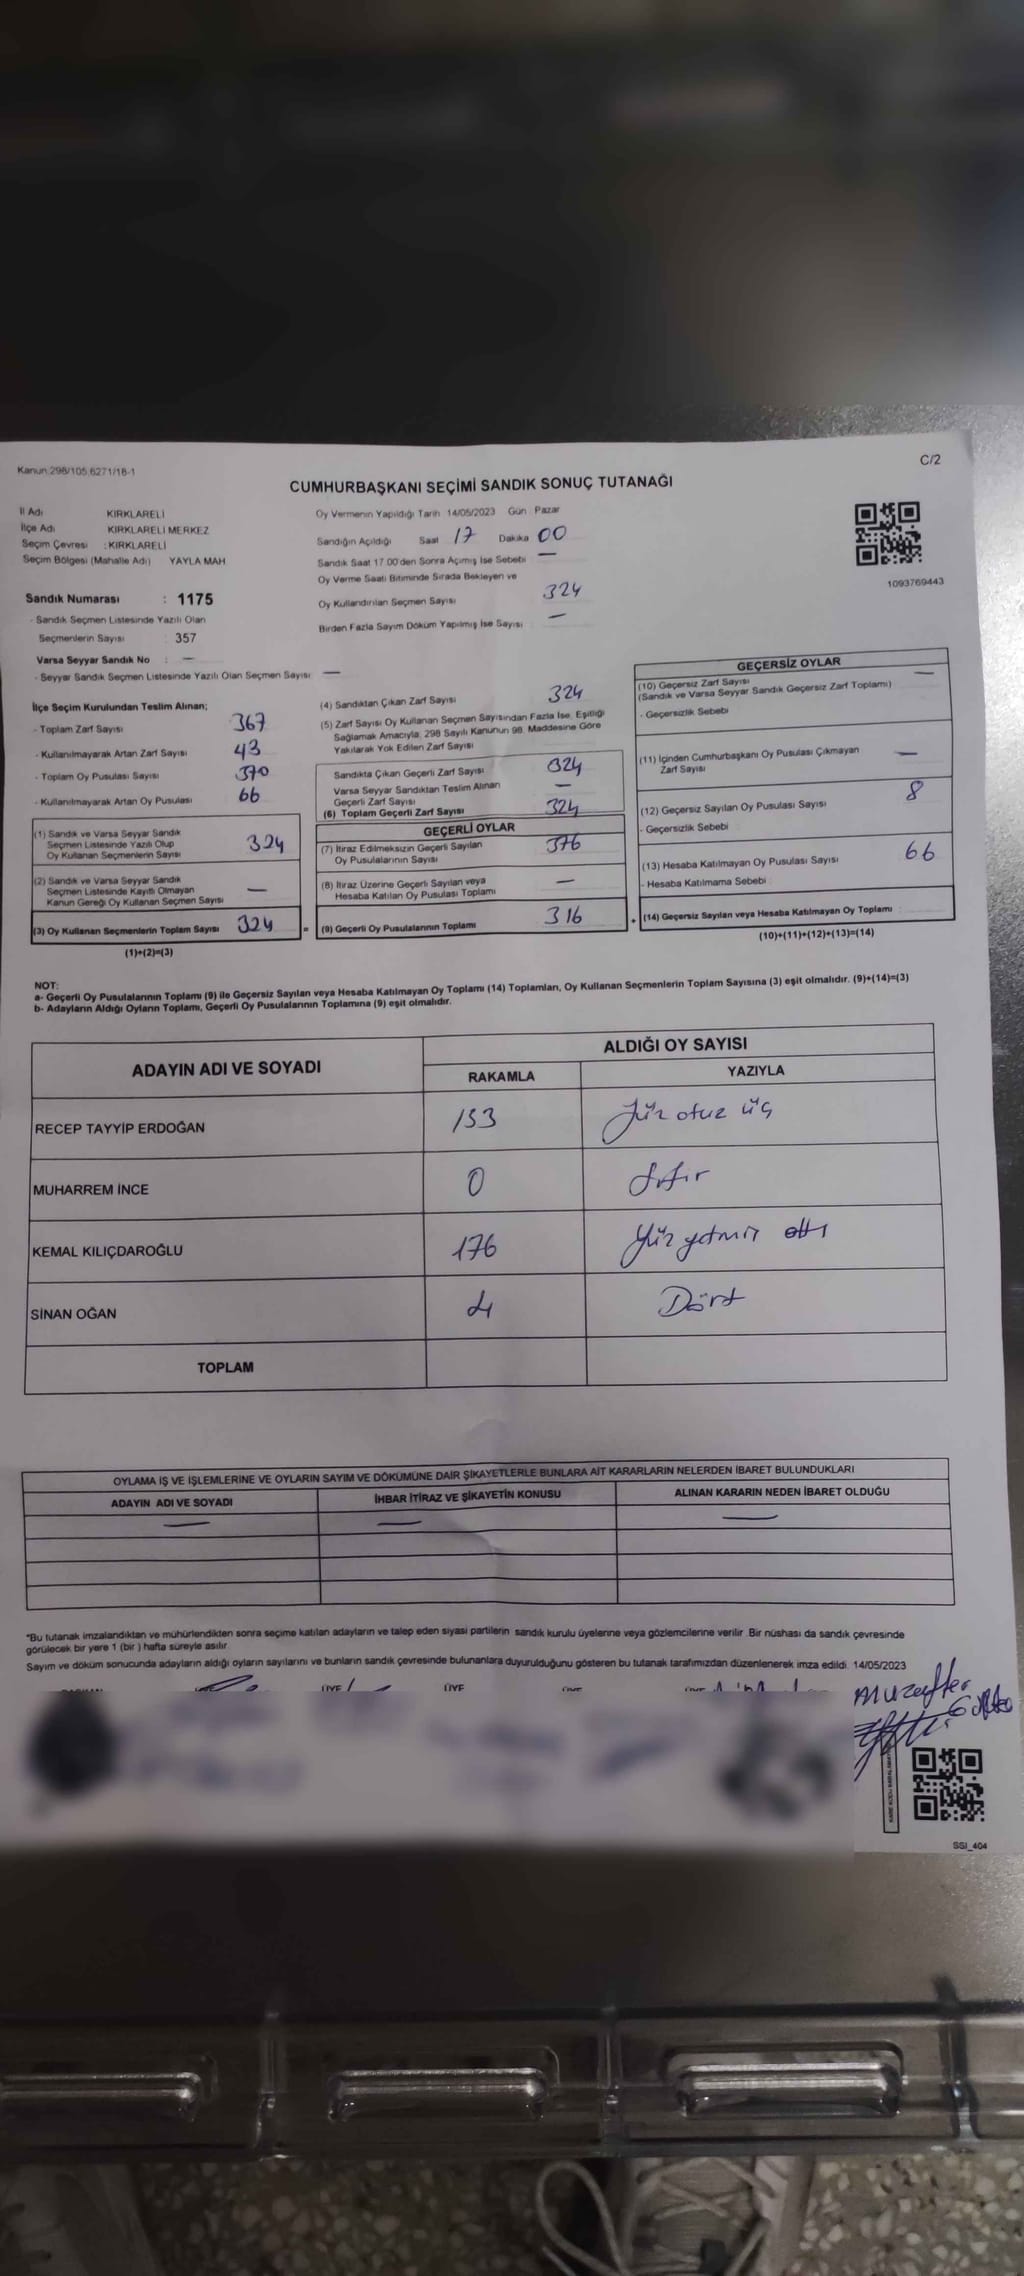 Kanun:298/105,6271/16-1
C/2
CUMHURBAŞKANI SEÇİMİ SANDIK SONUÇ TUTANAĞI
İl Adı KIRKLARELİ
İlçe Adı KIRKLARELİ MERKEZ
Seçim Çevresi : KIRKLARELİ
Seçim Bölgesi (Mahalle Adı) YAYLA MAH
Sandık Numarası : 1175
- Sandık Seçmen Listesinde Yazılı Olan
Seçmenlerin Sayısı : 357
Varsa Seyyar Sandık No : —
- Seyyar Sandık Seçmen Listesinde Yazılı Olan Seçmen Sayısı —
Oy Vermenin Yapıldığı Tarih 14/05/2023 Gün : Pazar
Sandığın Açıldığı Saat 17 Dakika 00
Sandık Saat 17.00'den Sonra Açımış İse Sebebi —
Oy Verme Saati Bitiminde Sırada Bekleyen ve
Oy Kullandırılan Seçmen Sayısı 324
Birden Fazla Sayım Döküm Yapılmış İse Sayısı : —
1093769443
İlçe Seçim Kurulundan Teslim Alınan;
- Toplam Zarf Sayısı 367
- Kullanılmayarak Artan Zarf Sayısı 43
- Toplam Oy Pusulası Sayısı 370
- Kullanılmayarak Artan Oy Pusulası 66
(1) Sandık ve Varsa Seyyar Sandık
Seçmen Listesinde Yazılı Olup
Oy Kullanan Seçmenlerin Sayısı 324
(2) Sandık ve Varsa Seyyar Sandık
Seçmen Listesinde Kayıtlı Olmayan
Kanun Gereği Oy Kullanan Seçmen Sayısı —
(3) Oy Kullanan Seçmenlerin Toplam Sayısı 324
(1)+(2)=(3)
(4) Sandıktan Çıkan Zarf Sayısı 324
(5) Zarf Sayısı Oy Kullanan Seçmen Sayısından Fazla İse, Eşitliği
Sağlamak Amacıyla, 298 Sayılı Kanunun 98. Maddesine Göre
Yakılarak Yok Edilen Zarf Sayısı
Sandıkta Çıkan Geçerli Zarf Sayısı 324
Varsa Seyyar Sandıktan Teslim Alınan
Geçerli Zarf Sayısı —
(6) Toplam Geçerli Zarf Sayısı 324
GEÇERLİ OYLAR
(7) İtiraz Edilmeksizin Geçerli Sayılan
Oy Pusulalarının Sayısı 376
(8) İtiraz Üzerine Geçerli Sayılan veya
Hesaba Katılan Oy Pusulası Toplamı —
= (9) Geçerli Oy Pusulalarının Toplamı 316
GEÇERSİZ OYLAR
(10) Geçersiz Zarf Sayısı —
(Sandık ve Varsa Seyyar Sandık Geçersiz Zarf Toplamı)
- Geçersizlik Sebebi
(11) İçinden Cumhurbaşkanı Oy Pusulası Çıkmayan
Zarf Sayısı —
(12) Geçersiz Sayılan Oy Pusulası Sayısı 8
- Geçersizlik Sebebi
(13) Hesaba Katılmayan Oy Pusulası Sayısı 66
- Hesaba Katılmama Sebebi
+ (14) Geçersiz Sayılan veya Hesaba Katılmayan Oy Toplamı :
(10)+(11)+(12)+(13)=(14)
NOT:
a- Geçerli Oy Pusulalarının Toplamı (9) ile Geçersiz Sayılan veya Hesaba Katılmayan Oy Toplamı (14) Toplamları, Oy Kullanan Seçmenlerin Toplam Sayısına (3) eşit olmalıdır. (9)+(14)=(3)
b- Adayların Aldığı Oyların Toplamı, Geçerli Oy Pusulalarının Toplamına (9) eşit olmalıdır.
ADAYIN ADI VE SOYADI ALDIĞI OY SAYISI
RAKAMLA YAZIYLA
RECEP TAYYİP ERDOĞAN 133 Yüz otuz üç
MUHARREM İNCE 0 Sıfır
KEMAL KILIÇDAROĞLU 176 Yüz yetmiş altı
SİNAN OĞAN 4 Dört
TOPLAM
OYLAMA İŞ VE İŞLEMLERİNE VE OYLARIN SAYIM VE DÖKÜMÜNE DAİR ŞİKAYETLERLE BUNLARA AİT KARARLARIN NELERDEN İBARET BULUNDUKLARI
ADAYIN ADI VE SOYADI İHBAR İTİRAZ VE ŞİKAYETİN KONUSU ALINAN KARARIN NEDEN İBARET OLDUĞU
— — —
*Bu tutanak imzalandıktan ve mühürlendikten sonra seçime katılan adayların ve talep eden siyasi partilerin sandık kurulu üyelerine veya gözlemcilerine verilir. Bir nüshası da sandık çevresinde
görülecek bir yere 1 (bir ) hafta süreyle asılır.
Sayım ve döküm sonucunda adayların aldığı oyların sayılarını ve bunların sandık çevresinde bulunanlara duyurulduğunu gösteren bu tutanak tarafımızdan düzenlenerek imza edildi. 14/05/2023
ÜYE ÜYE
Muzaffer
SSI_404